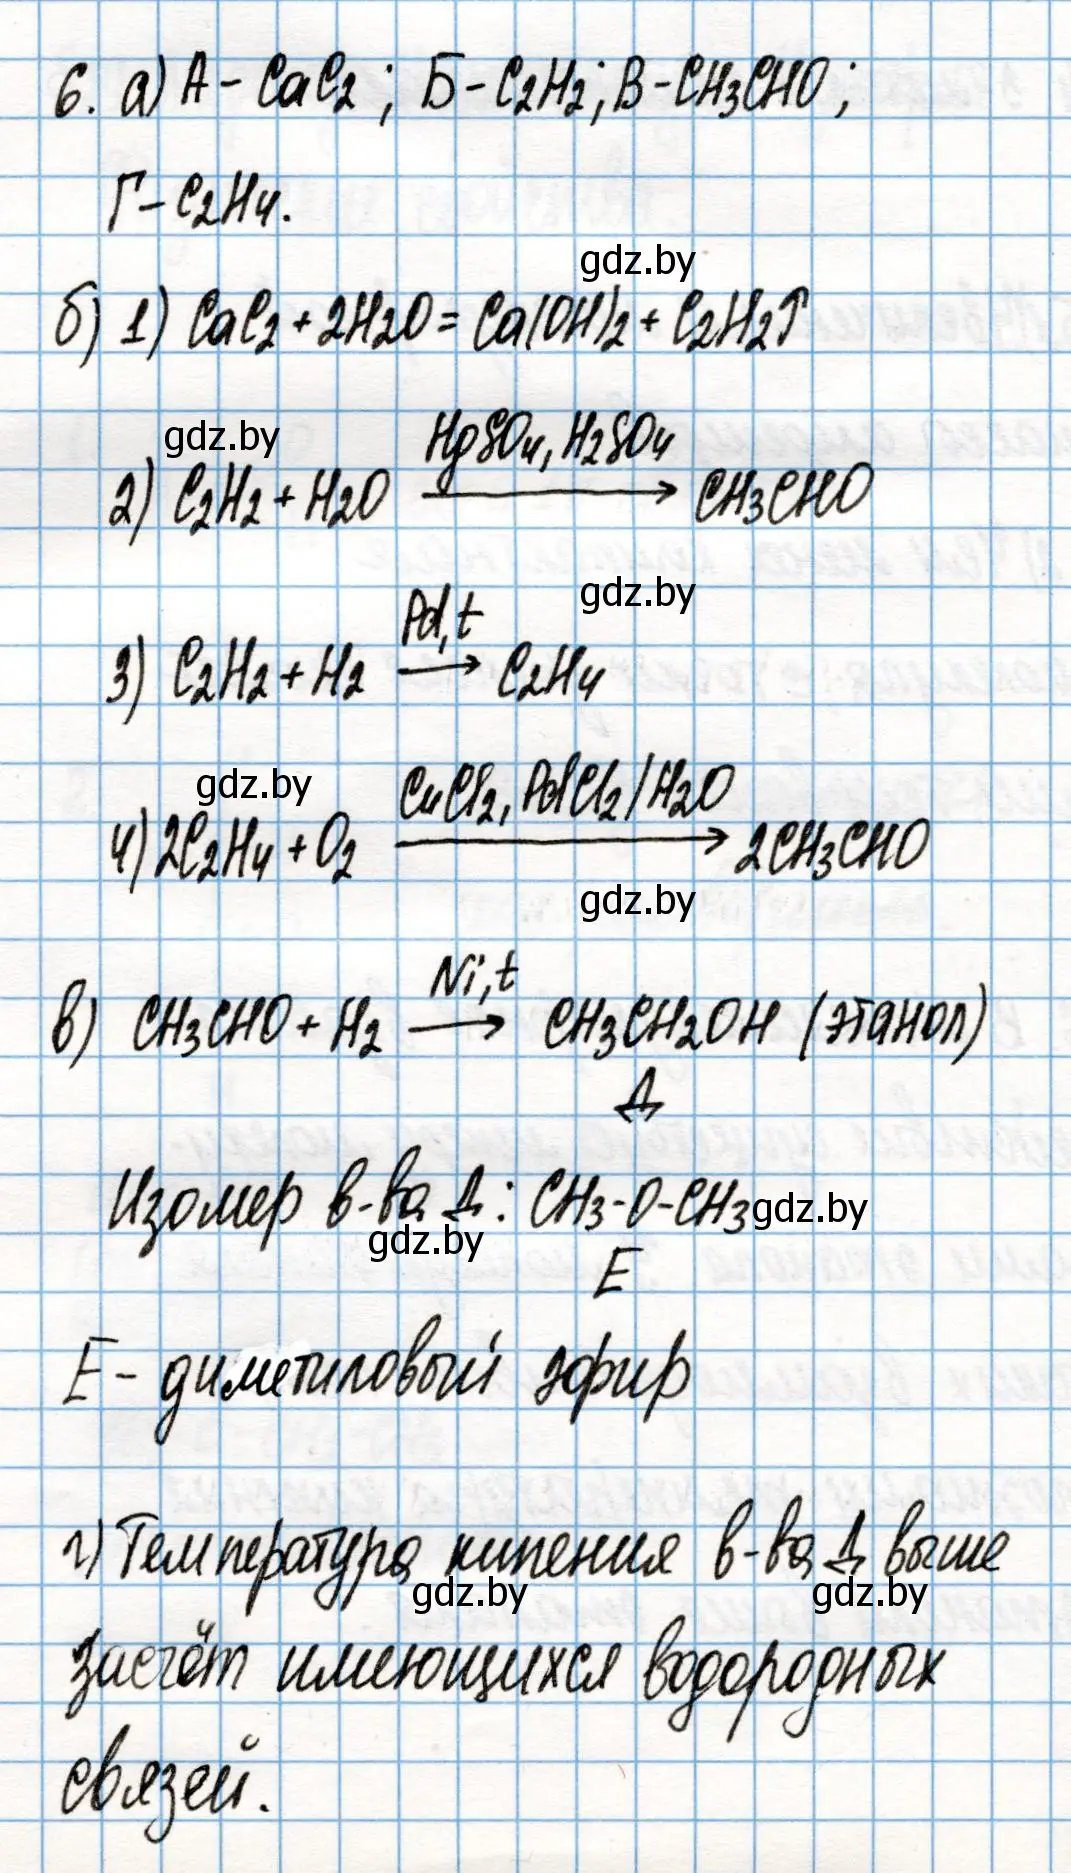 6. а) А - CaC2; Б - C2H2; В - CH3CHO;
Г - C2H4.
gdz.by
б) 1) CaC2 + 2H2O = Ca(OH)2 + C2H2↑
gdz.by
HgSO4, H2SO4
2) C2H2 + H2O → CH3CHO
gdz.by
Pd, t
3) C2H2 + H2 → C2H4
gdz.by
CuCl2, PdCl2 / H2O
4) 2C2H4 + O2 → 2CH3CHO
gdz.by
Ni, t
в) CH3CHO + H2 → CH3CH2OH (этанол)
Д
Изомер в-ва Д: CH3-O-CH3
gdz.by
gdz.by
Е
Е - диметиловый эфир
г) Температура кипения в-ва Д выше
gdz.by
gdz.by
засчёт имеющихся водородных
связей.